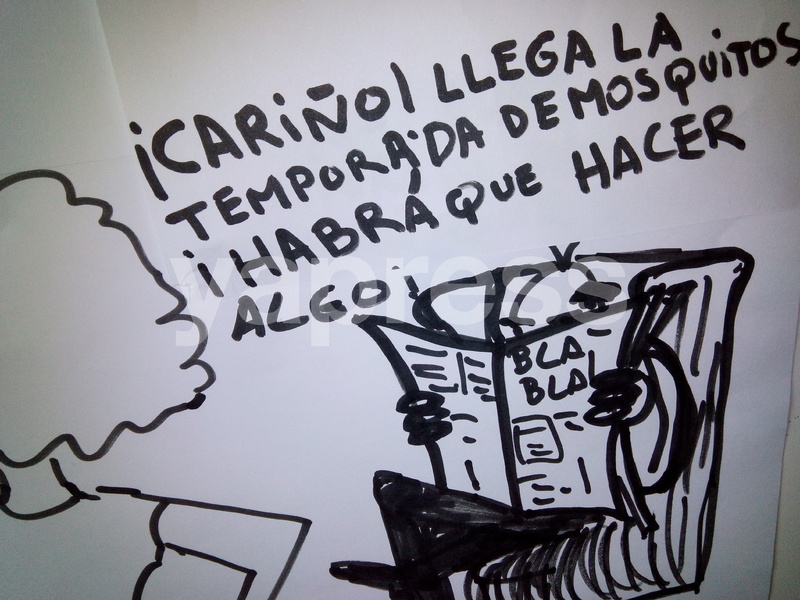 ¡CARIÑO! LLEGA LA
TEMPORADA DE MOSQUITOS
¡HABRÁ QUE HACER
ALGO!
yapress
BLA
BLA